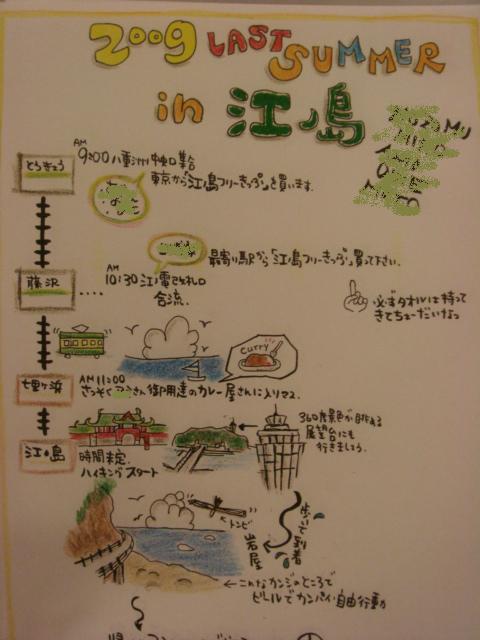 2009 LAST SUMMER
in 江ノ島
とうきょう
AM
9:00 八重洲中央口集合
東京から「江ノ島フリーきっぷ」を買います。
最寄り駅から「江ノ島フリーきっぷ」買って下さい。
藤沢
AM
10:30 江ノ電改札口
合流。
必ずタオルは持って
きてちょーだいなっ
curry
七里ヶ浜
AM 11:00
さっそく さん御用達のカレー屋さんに入りマス。
360度景色が見れる
展望台にも
行きましょう。
江ノ島
時間未定.
ハイキングスタート
トンビ
歩いて到着
岩屋
←こんなカンジのところで
ビールでカンパイ・自由行動